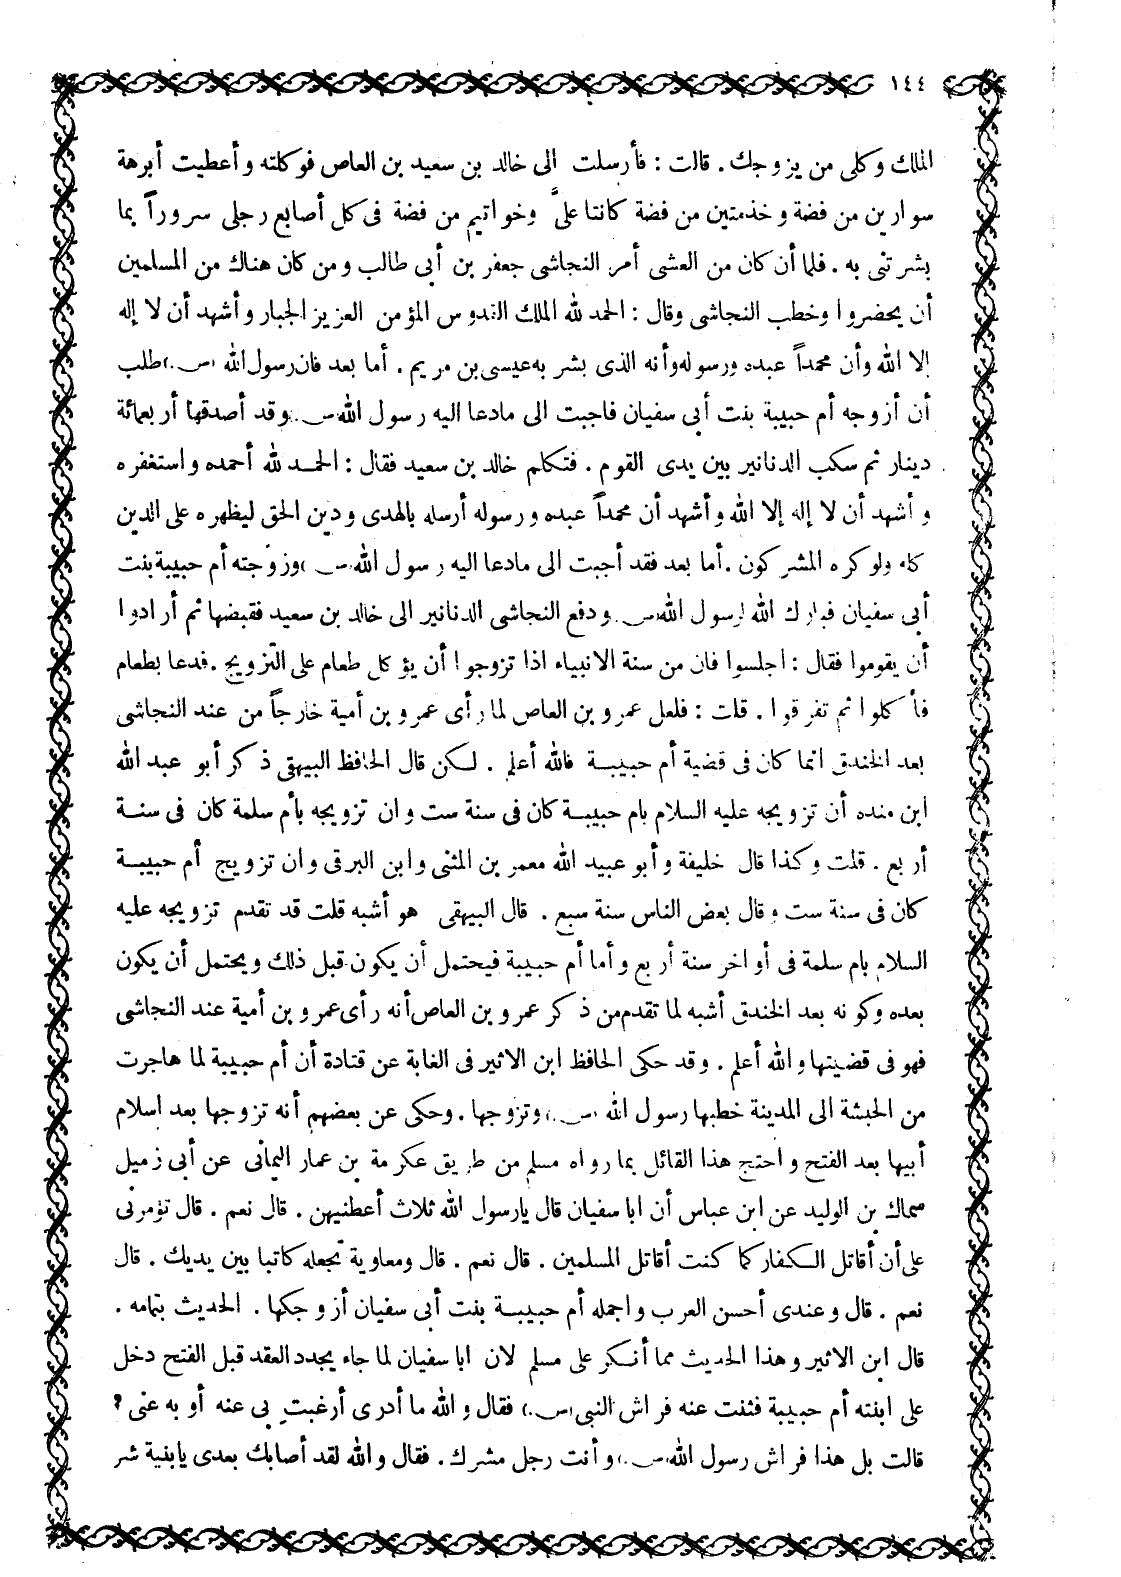 ١٤٤
الملك وكلى من يزوجك. قالت: فأرسلت الى خالد بن سعيد بن العاص فوكلته وأعطيت أبرهة
سوارين من فضة وخذمتين من فضة كانتا علىَّ وخواتيم من فضة فى كل أصابع رجلى سروراً بما
بشرتنى به. فلما أن كان من العشى أمر النجاشى جعفر بن أبى طالب ومن كان هناك من المسلمين
أن يحضروا وخطب النجاشى وقال: الحمد لله الملك القدوس المؤمن العزيز الجبار وأشهد أن لا إله
إلا الله وأن محمداً عبده ورسوله وأنه الذى بشر به عيسى بن مريم. أما بعد فان رسول الله (ص.) طلب
أن أزوجه أم حبيبة بنت أبى سفيان فاجبت الى مادعا اليه رسول الله (ص.) وقد أصدقها أربعمائة
دينار ثم سكب الدنانير بين يدى القوم. فتكلم خالد بن سعيد فقال: الحمد لله أحمده واستغفره
وأشهد أن لا إله إلا الله وأشهد أن محمداً عبده ورسوله أرسله بالهدى ودين الحق ليظهره على الدين
كله ولو كره المشركون. أما بعد فقد أجبت الى مادعا اليه رسول الله (ص.) وزوّجته أم حبيبة بنت
أبى سفيان فبارك الله لرسول الله (ص.) ودفع النجاشى الدنانير الى خالد بن سعيد فقبضها ثم أرادوا
أن يقوموا فقال: اجلسوا فان من سنة الانبياء اذا تزوجوا أن يؤكل طعام على التزويج. فدعا بطعام
فأكلوا ثم تفرقوا. قلت: فلعل عمرو بن العاص لما رأى عمرو بن أمية خارجاً من عند النجاشى
بعد الخندق انما كان فى قضية أم حبيبة فالله أعلم. لكن قال الحافظ البيهقى ذكر أبو عبد الله
ابن منده أن تزويجه عليه السلام بام حبيبة كان فى سنة ست وان تزويجه بأم سلمة كان فى سنة
أربع. قلت وكذا قال خليفة وأبو عبيد الله معمر بن المثنى وابن البرقى وان تزويج أم حبيبة
كان فى سنة ست وقال بعض الناس سنة سبع. قال البيهقى هو أشبه قلت قد تقدم تزويجه عليه
السلام بام سلمة فى أواخر سنة أربع وأما أم حبيبة فيحتمل أن يكون قبل ذلك ويحتمل أن يكون
بعده وكونه بعد الخندق أشبه لما تقدم من ذكر عمرو بن العاص أنه رأى عمرو بن أمية عند النجاشى
فهو فى قضيتها والله أعلم. وقد حكى الحافظ ابن الاثير فى الغابة عن قتادة أن أم حبيبة لما هاجرت
من الحبشة الى المدينة خطبها رسول الله (ص.) وتزوجها. وحكى عن بعضهم أنه تزوجها بعد اسلام
أبيها بعد الفتح واحتج هذا القائل بما رواه مسلم من طريق عكرمة بن عمار اليمانى عن أبى زميل
سماك بن الوليد عن ابن عباس أن ابا سفيان قال يارسول الله ثلاث أعطنيهن. قال نعم. قال تؤمرنى
على أن أقاتل الكفار كما كنت أقاتل المسلمين. قال نعم. قال ومعاوية تجعله كاتبا بين يديك. قال
نعم. قال وعندى أحسن العرب واجمله أم حبيبة بنت أبى سفيان أزوجكها. الحديث بتمامه.
قال ابن الاثير وهذا الحديث مما أنكر على مسلم لان ابا سفيان لما جاء يجدد العقد قبل الفتح دخل
على ابنته أم حبيبة فثنت عنه فراش النبى (ص.) فقال والله ما أدرى أرغبت بى عنه أو به عنى؟
قالت بل هذا فراش رسول الله (ص.) وأنت رجل مشرك. فقال والله لقد أصابك بعدى يابنية شر